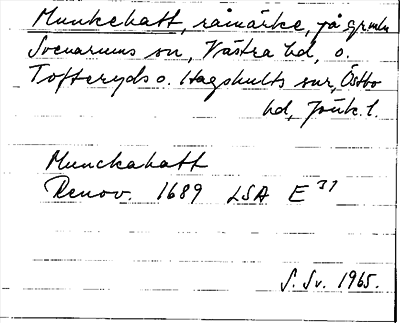 Munkehatt, råmärke, på gr mln
Svenarums sn, Västra hd, o.
Tofteryds o. Hagshults snr, Östbo
hd, Jönk. l.
Munckahatt
Renov. 1689 LSA E 31
S. Sv. 1965.